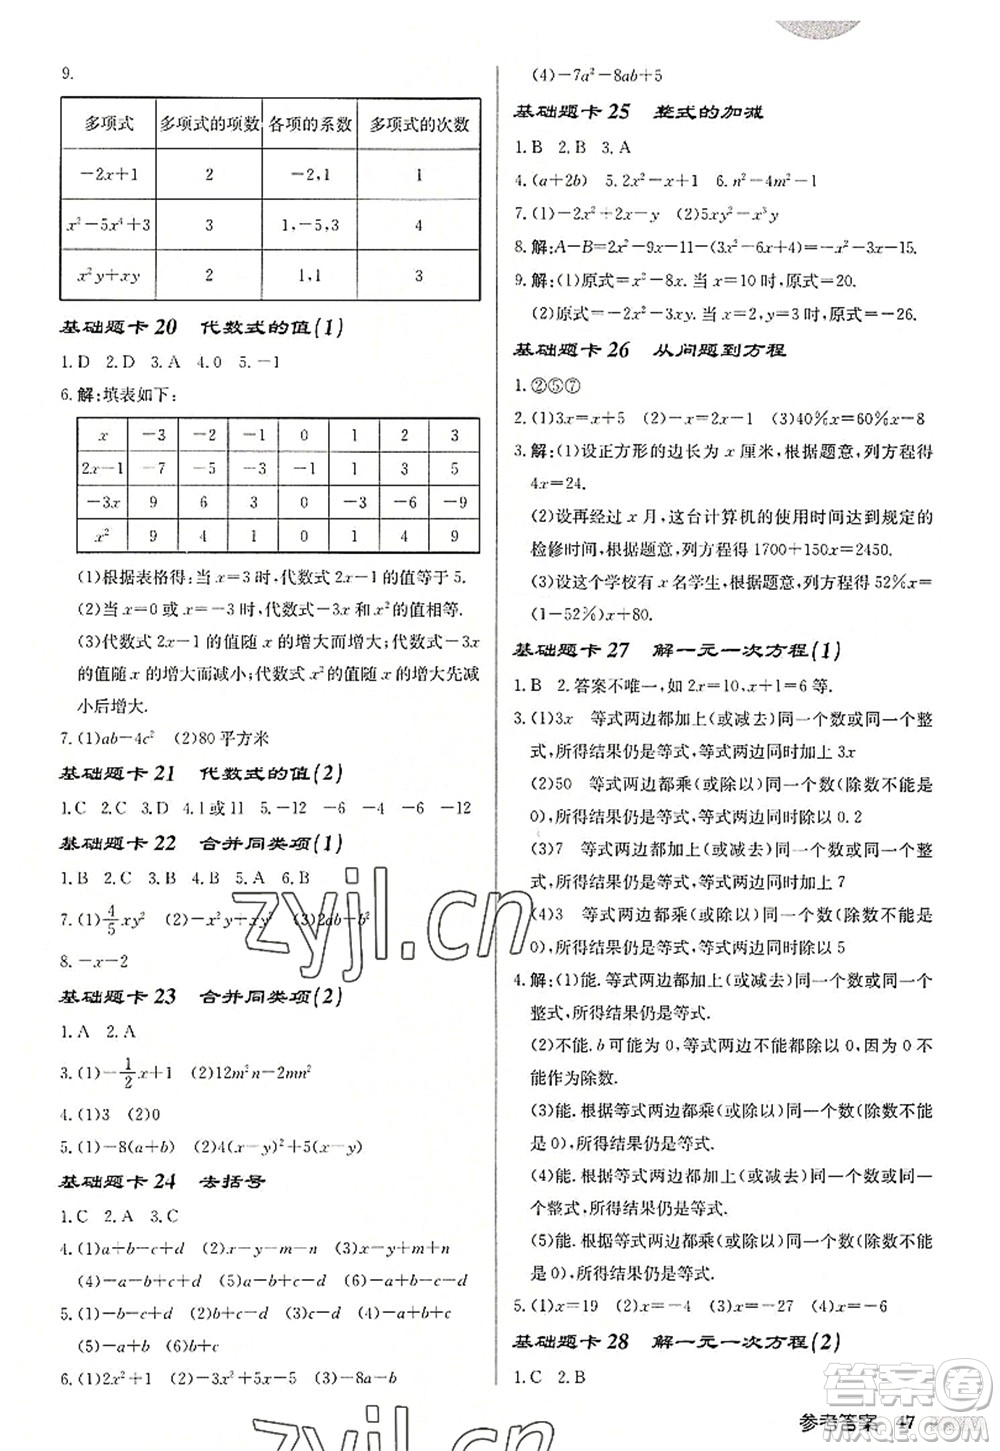 9.
多项式 多项式的项数 各项的系数 多项式的次数
−2x+1 2 −2,1 1
x²−5x⁴+3 3 1,−5,3 4
x²y+xy 2 1,1 3
基础题卡 20 代数式的值(1)
1.D 2.D 3.A 4.0 5.−1
6.解:填表如下:
x −3 −2 −1 0 1 2 3
2x−1 −7 −5 −3 −1 1 3 5
−3x 9 6 3 0 −3 −6 −9
x² 9 4 1 0 1 4 9
(1)根据表格得:当 x=3 时,代数式 2x−1 的值等于 5.
(2)当 x=0 或 x=−3 时,代数式−3x 和 x² 的值相等.
(3)代数式 2x−1 的值随 x 的增大而增大;代数式−3x
的值随 x 的增大而减小;代数式 x² 的值随 x 的增大先减
小后增大.
7.(1)ab−4c² (2)80 平方米
基础题卡 21 代数式的值(2)
1.C 2.C 3.D 4.1 或 11 5.−12 −6 −4 −6 −12
基础题卡 22 合并同类项(1)
1.B 2.C 3.B 4.B 5.A 6.B
7.(1)4/5xy² (2)−x²y+xy² (3)2ab+b²
8.−x−2
基础题卡 23 合并同类项(2)
1.A 2.A
3.(1)−1/2x+1 (2)12m²n−2mn²
4.(1)3 (2)0
5.(1)−8(a+b) (2)4(x−y)²+5(x−y)
基础题卡 24 去括号
1.C 2.A 3.C
4.(1)a+b−c+d (2)x−y−m−n (3)x+y−m+n
(4)−a−b+c+d (5)−a+b+c−d (6)−a+b−c+d
5.(1)−b−c+d (2)−b+c−d (3)−b+c+d
(5)−a+b (6)b+c
6.(1)2x²+1
(4)−7a²−8ab+5
基础题卡 25 整式的加减
1.B 2.B 3.A
4.(a+2b) 5.2x²−x+1 6.n²−4m²−1
7.(1)−2x²+2x−y (2)5xy²−x³y
8.解:A−B=2x²−9x−11−(3x²−6x+4)=−x²−3x−15.
9.解:(1)原式=x²−8x. 当 x=10 时,原式=20.
(2)原式=−2x²−3xy. 当 x=2,y=3 时,原式=−26.
基础题卡 26 从问题到方程
1.②⑤⑦
2.(1)3x=x+5 (2)−x=2x−1 (3)40%x=60%x−8
3.解:(1)设正方形的边长为 x 厘米,根据题意,列方程得
4x=24.
(2)设再经过 x 月,这台计算机的使用时间达到规定的
检修时间,根据题意,列方程得 1700+150x=2450.
(3)设这个学校有 x 名学生,根据题意,列方程得 52%x=
(1−52%)x+80.
基础题卡 27 解一元一次方程(1)
1.B 2.答案不唯一,如 2x=10,x+1=6 等.
3.(1)3x 等式两边都加上(或减去)同一个数或同一个整
式,所得结果仍是等式,等式两边同时加上 3x
(2)50 等式两边都乘(或除以)同一个数(除数不能是
0),所得结果仍是等式,等式两边同时除以 0.2
(3)7 等式两边都加上(或减去)同一个数或同一个整
式,所得结果仍是等式,等式两边同时加上 7
(4)3 等式两边都乘(或除以)同一个数(除数不能是
0),所得结果仍是等式,等式两边同时除以 5
4.解:(1)能. 等式两边都加上(或减去)同一个数或同一个
整式,所得结果仍是等式.
(2)不能. b 可能为 0,等式两边不能除以 0,因为 0 不
能作为除数.
(3)能. 根据等式两边都乘(或除以)同一个数(除数不能
是 0),所得结果仍是等式.
(4)能. 根据等式两边都加上(或减去)同一个数或同一
个整式,所得结果仍是等式.
(5)能. 根据等式两边都乘(或除以)同一个数(除数不能
是 0),所得结果仍是等式.
5.(1)x=19 (2)x=−4 (3)x=−27 (4)x=−6
基础题卡 28 解一元一次方程(2)
1.C 2.B
参考答案 47
zyjl.cn
答案圈